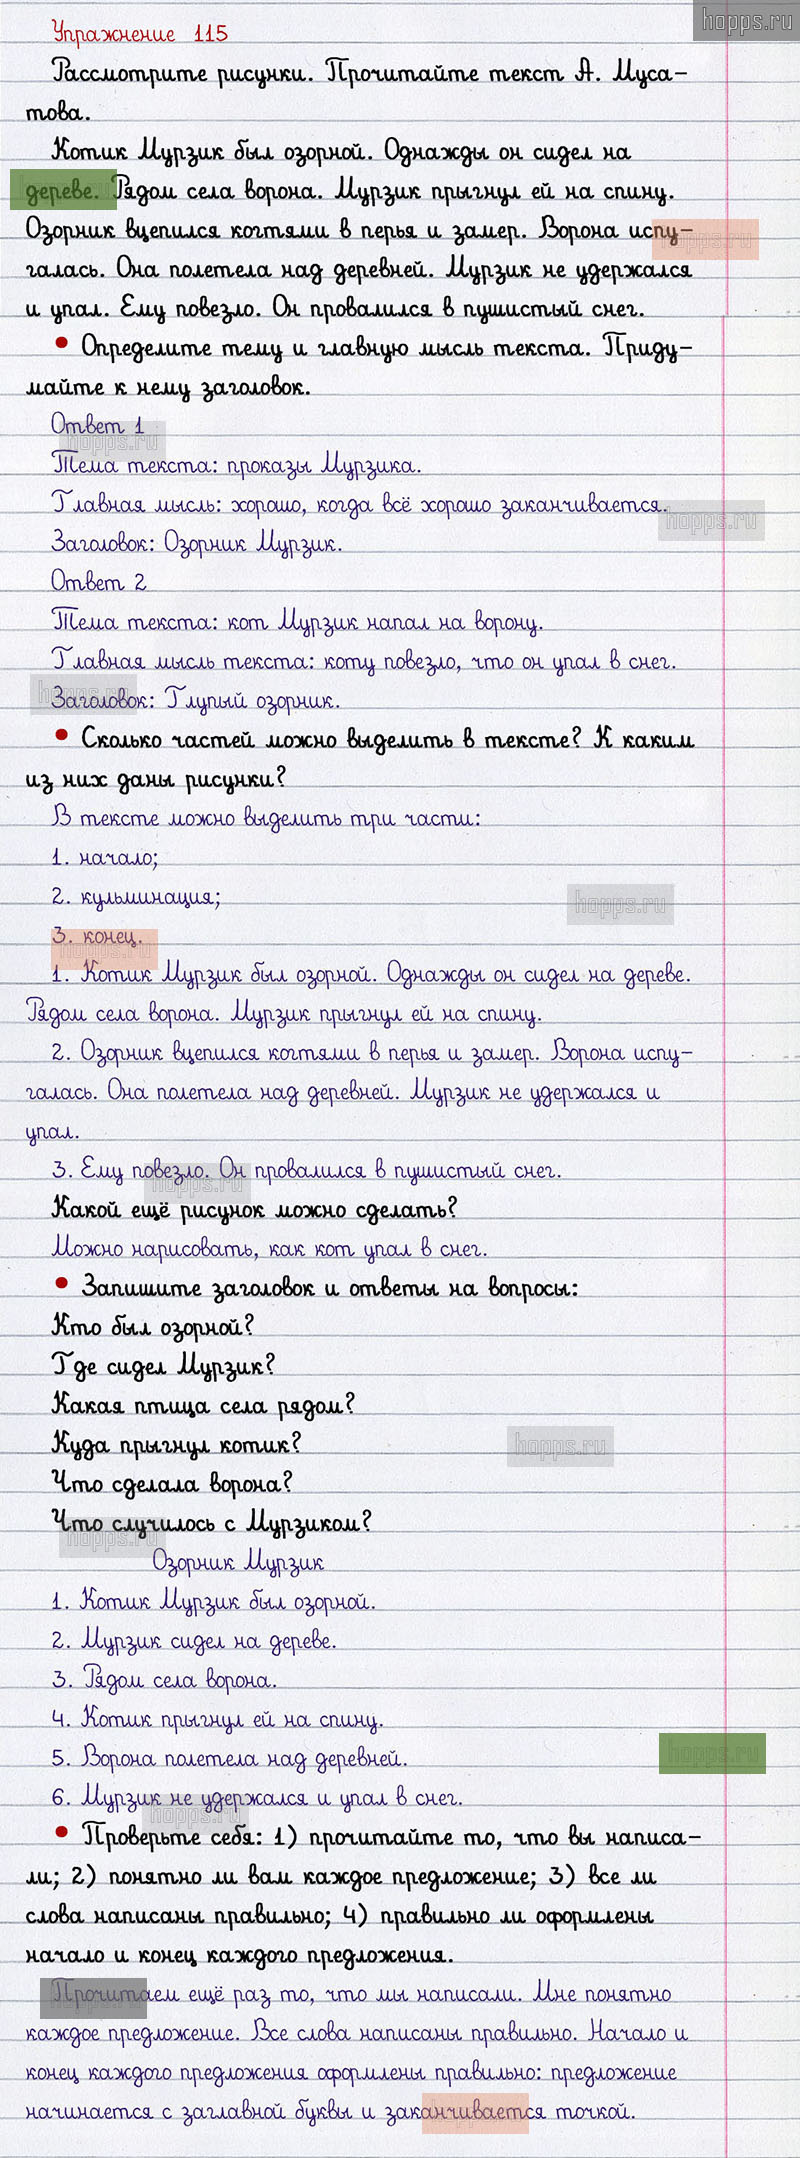 hopps.ru
Упражнение 115
Рассмотрите рисунки. Прочитайте текст А. Муса-
това.
Котик Мурзик был озорной. Однажды он сидел на
дереве. Рядом села ворона. Мурзик прыгнул ей на спину.
Озорник вцепился когтями в перья и замер. Ворона испу-
hopps.ru
галась. Она полетела над деревней. Мурзик не удержался
и упал. Ему повезло. Он провалился в пушистый снег.
• Определите тему и главную мысль текста. Приду-
майте к нему заголовок.
Ответ 1
hopps.ru
Тема текста: проказы Мурзика.
Главная мысль: хорошо, когда всё хорошо заканчивается.
hopps.ru
Заголовок: Озорник Мурзик.
Ответ 2
Тема текста: кот Мурзик напал на ворону.
Главная мысль текста: коту повезло, что он упал в снег.
hopps.ru
Заголовок: Глупый озорник.
• Сколько частей можно выделить в тексте? К каким
из них даны рисунки?
В тексте можно выделить три части:
1. начало;
2. кульминация;
hopps.ru
3. конец.
hopps.ru
1. Котик Мурзик был озорной. Однажды он сидел на дереве.
Рядом села ворона. Мурзик прыгнул ей на спину.
2. Озорник вцепился когтями в перья и замер. Ворона испу-
галась. Она полетела над деревней. Мурзик не удержался и
упал.
3. Ему повезло. Он провалился в пушистый снег.
hopps.ru
Какой ещё рисунок можно сделать?
Можно нарисовать, как кот упал в снег.
• Запишите заголовок и ответы на вопросы:
Кто был озорной?
Где сидел Мурзик?
Какая птица села рядом?
Куда прыгнул котик?
hopps.ru
Что сделала ворона?
Что случилось с Мурзиком?
hopps.ru
Озорник Мурзик
1. Котик Мурзик был озорной.
2. Мурзик сидел на дереве.
3. Рядом села ворона.
4. Котик прыгнул ей на спину.
5. Ворона полетела над деревней.
hopps.ru
6. Мурзик не удержался и упал в снег.
hopps.ru
• Проверьте себя: 1) прочитайте то, что вы написа-
ли; 2) понятно ли вам каждое предложение; 3) все ли
слова написаны правильно; 4) правильно ли оформлены
начало и конец каждого предложения.
Прочитаем ещё раз то, что мы написали. Мне понятно
каждое предложение. Все слова написаны правильно. Начало и
конец каждого предложения оформлены правильно: предложение
начинается с заглавной буквы и заканчивается точкой.